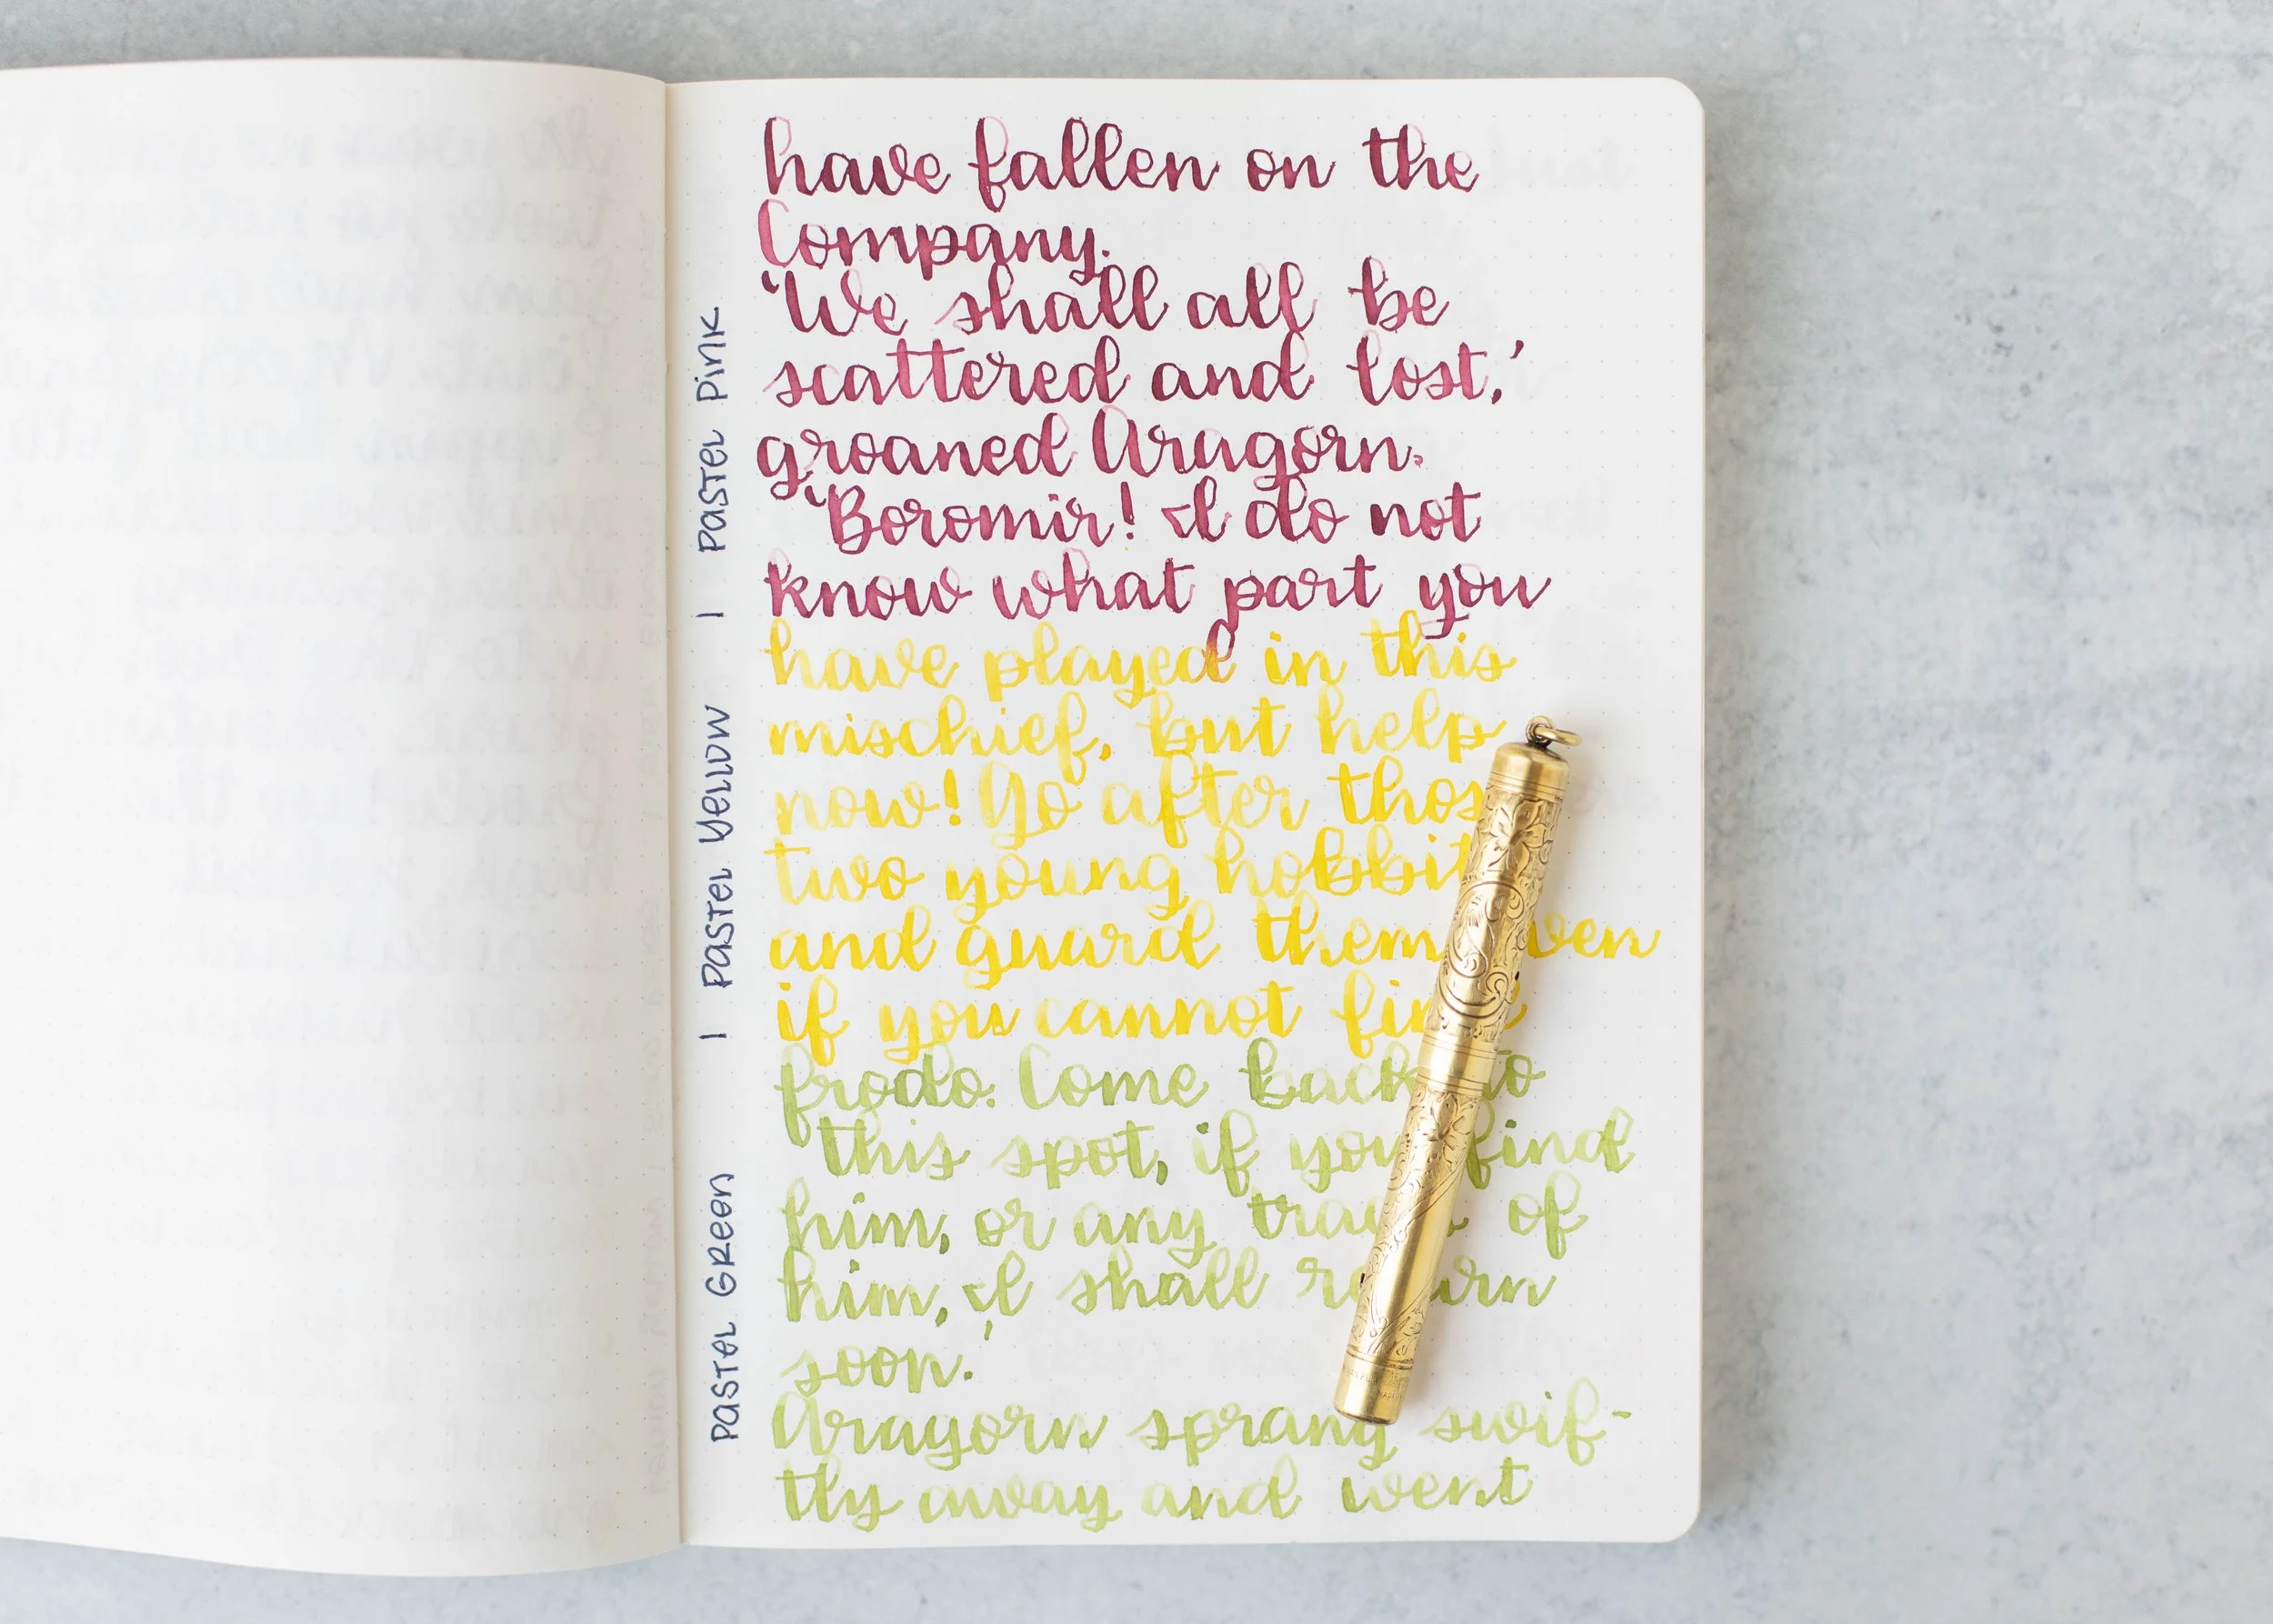 have fallen on the
Company.
‘We shall all be
scattered and lost,’
groaned Aragorn.
‘Boromir! I do not
know what part you
have played in this
mischief, but help
now! Go after thos
two young hobbit
and guard them ven
if you cannot fin
frodo. Come back to
this spot, if you find
him, or any trac of
him, I shall re urn
soon.’
Aragorn sprang swif-
tly away and went
PASTEL GREEN | PASTEL YELLOW | PASTEL PINK